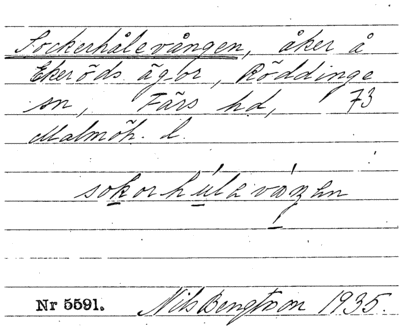 Sockerhålevången, åker å
Ekeröds ägor, Röddinge
sn, Färs hd, 73
Malmöh. l.
Nr 5591. Nils Bengtson 1935.